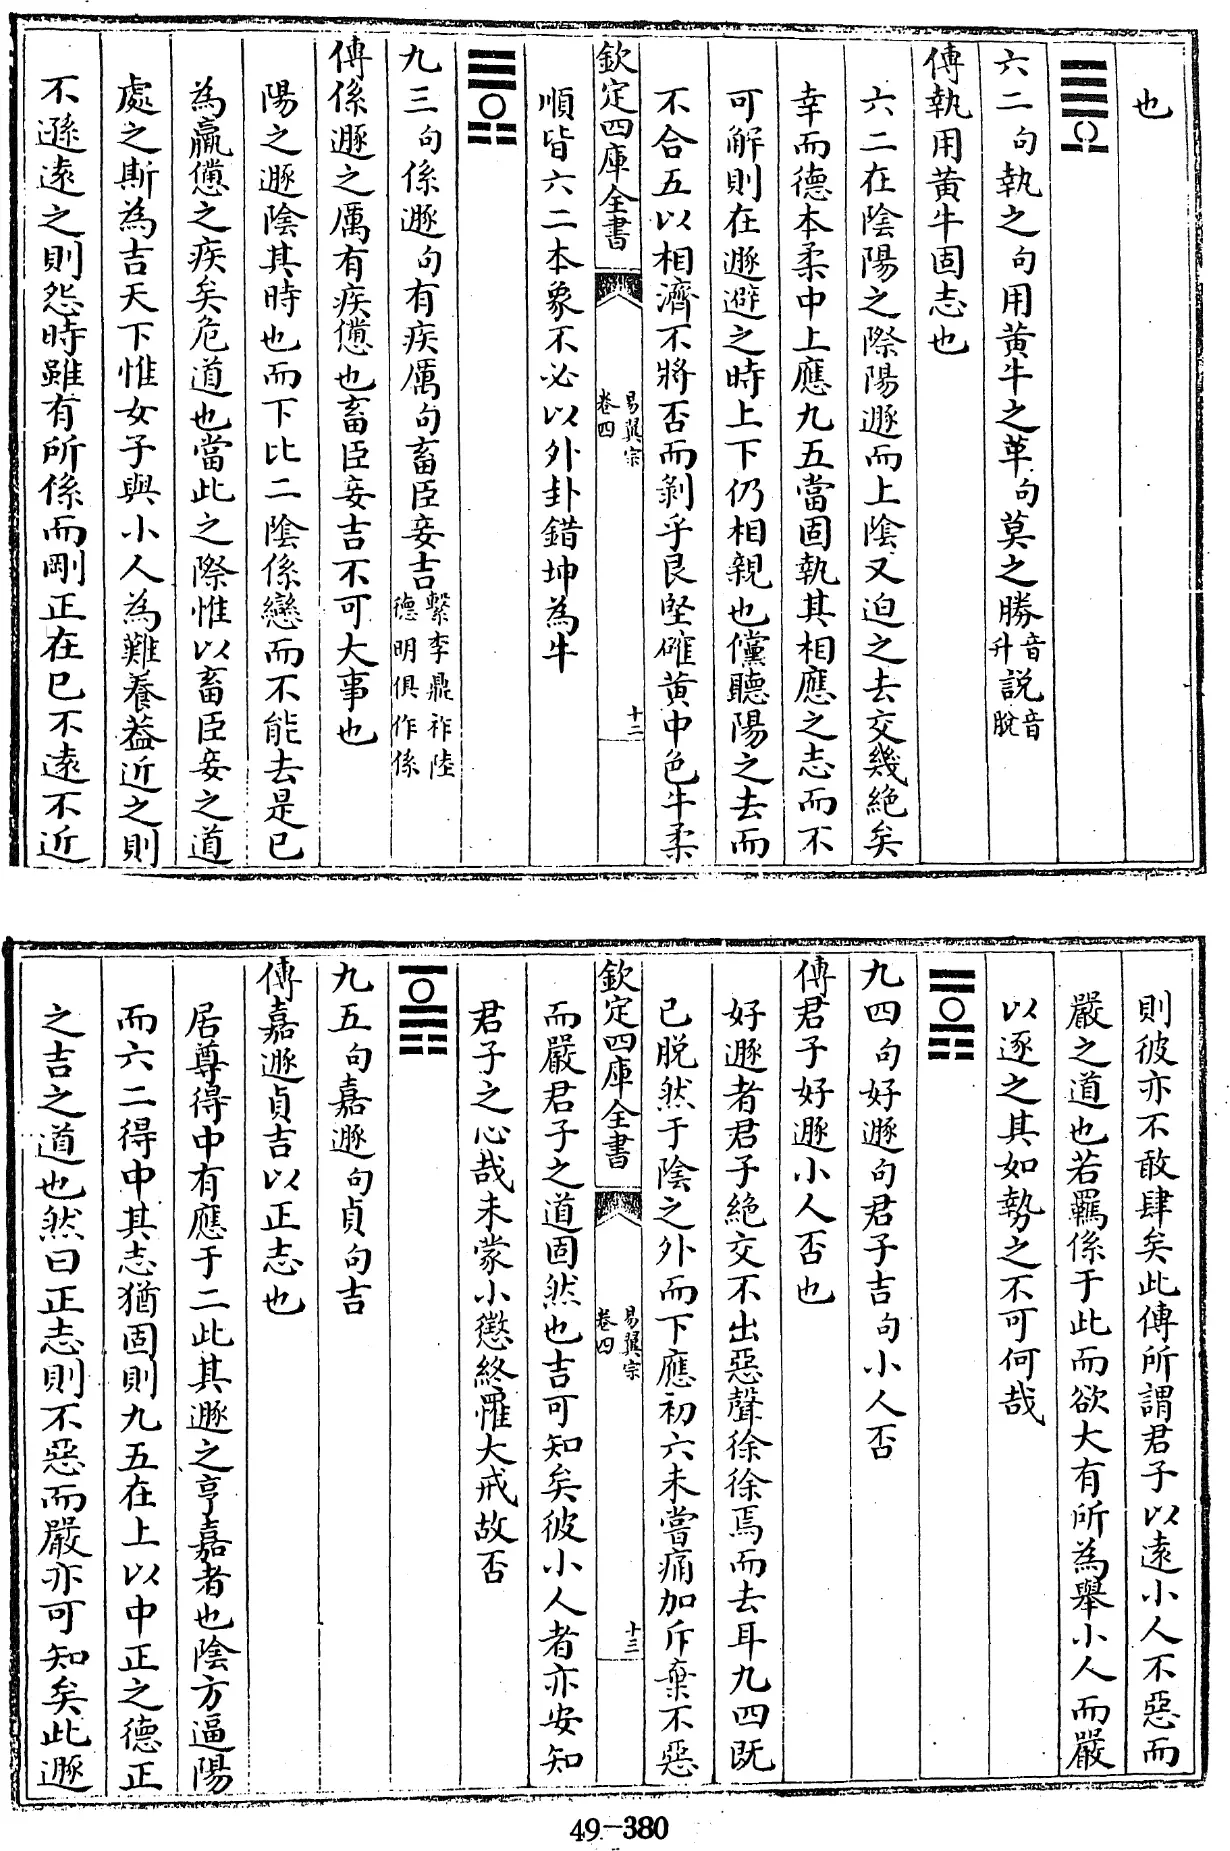 也
六二句執之句用黄牛之革句莫之勝音升說音脫
傳執用黄牛固志也
六二在陰陽之際陽遯而上陰又迫之去交幾絶矣
幸而德本柔中上應九五當固執其相應之志而不
可解則在遯避之時上下仍相親也儻聽陽之去而
不合五以相濟不將否而剝乎艮堅確黄中色牛柔
欽定四庫全書
易翼宗
卷四
十二
順皆六二本象不必以外卦錯坤為牛
九三句係遯句有疾厲句畜臣妾吉繫李鼎祚陸德明俱作係
傳係遯之厲有疾憊也畜臣妾吉不可大事也
陽之遯陰其時也而下比二陰係戀而不能去是已
為羸憊之疾矣危道也當此之際惟以畜臣妾之道
處之斯為吉天下惟女子與小人為難養葢近之則
不遜逺之則怨時雖有所係而剛正在已不逺不近
則彼亦不敢肆矣此傳所謂君子以逺小人不惡而
嚴之道也若羈係于此而欲大有所為舉小人而嚴
以逐之其如勢之不可何哉
九四句好遯句君子吉句小人否
傳君子好遯小人否也
好遯者君子絶交不出惡聲徐徐焉而去耳九四既
已脱然于陰之外而下應初六未嘗痛加斥棄不惡
欽定四庫全書
易翼宗
卷四
十三
而嚴君子之道固然也吉可知矣彼小人者亦安知
君子之心哉未蒙小懲終罹大戒故否
九五句嘉遯句貞句吉
傳嘉遯貞吉以正志也
居尊得中有應于二此其遯之亨嘉者也陰方逼陽
而六二得中其志猶固則九五在上以中正之德正
之吉之道也然曰正志則不惡而嚴亦可知矣此遯
49-380